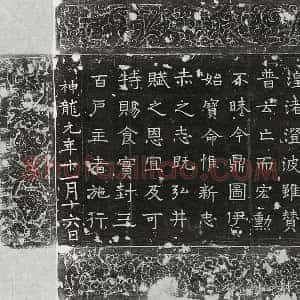 淳浇澄波雖贊
普去亡而宏勳
不昧今鼎圖伊
始寶命惟新志
赤之志既弘井
賦之恩宜及可
特賜食實封三
百戶主者施行
神龍元年十月十六日